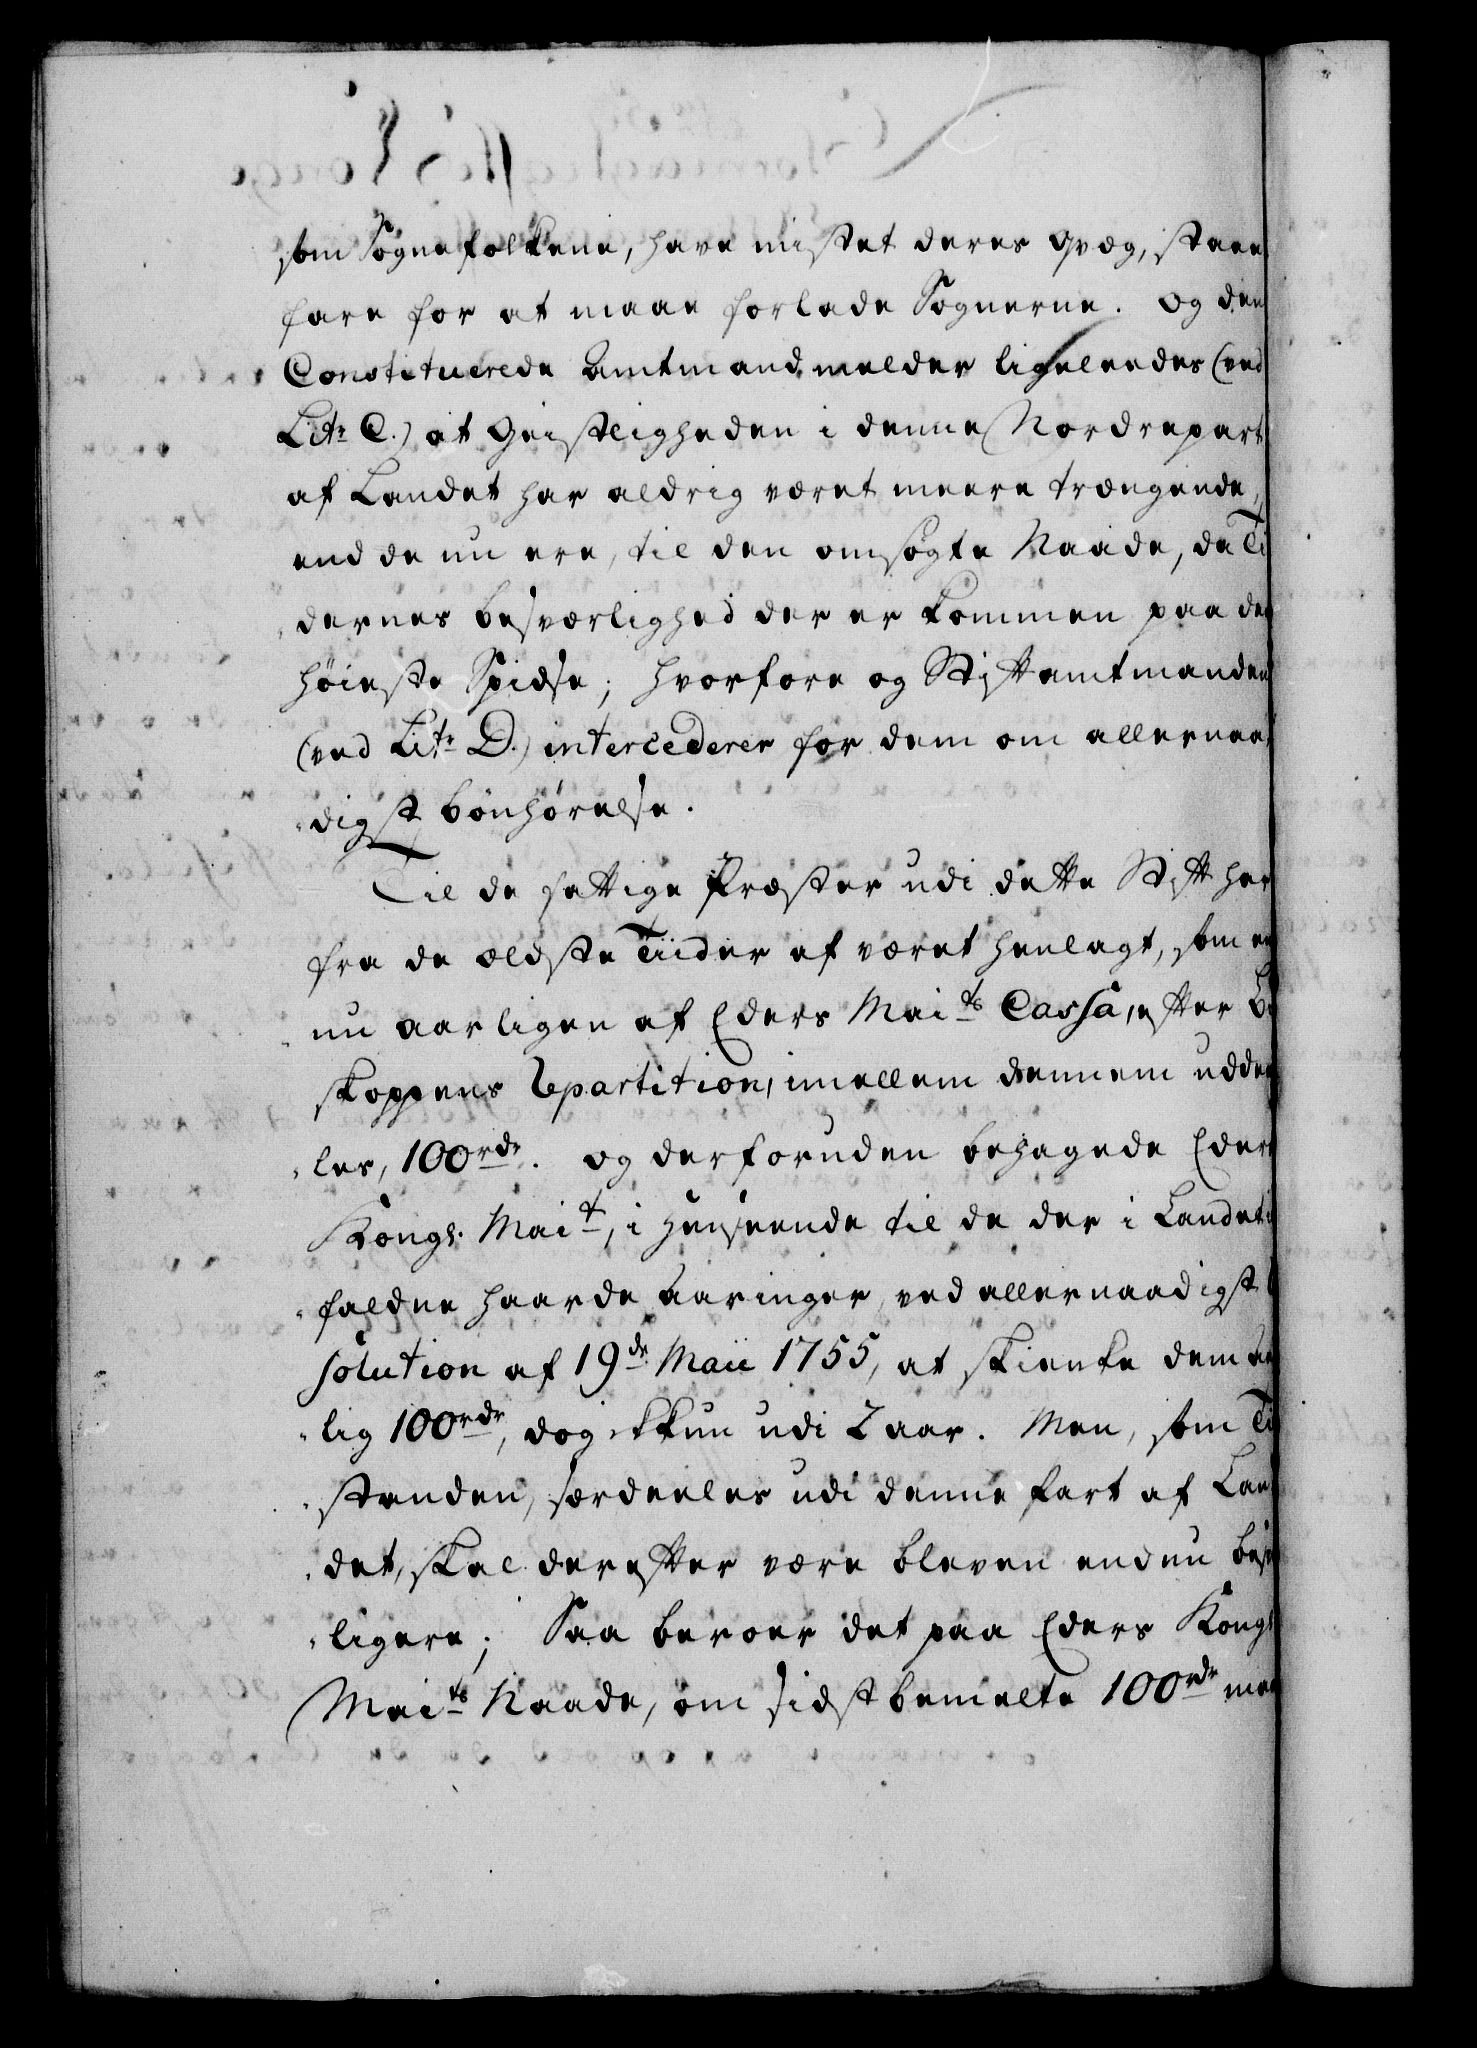 som Sognefolkene, have mistet deres Qvæg, staae
fare for at maae forlade Sognerne. Og den
Constituerede Amtmand melder ligeleedes (ved
Litr C.) at Geistligheden i denne Nordrepart
af Landet har aldrig været meere trængende,
end de nu ere, til den omsøgte Naade, da Ti
dernes besværlighed der er kommen paa den
høieste Spidse; hvorfore og Stiftamtmanden
(ved Litr D.) intercederer for dem om allernaa
digst bönhörelse.
Til de fattige Præster udi dette Stift har
fra de ældste Tiider af været henlagt, som en
nu aarligen af Eders Maits Cassa, efter Bi
skoppens Repartition, imellem dennem uddee
les, 100rdr. og derforuden behagede Eders
Kongl. Mait, i henseende til de der i Landet i
faldne haarde Aaringer, ved allernaadigst
solution af 19de Maii 1755, at skienke dem aar
lig 100rdr, dog ikkun udi 2 aar. Men, som Ti
standen, særdeeles udi denne Part af Lan
det, skal derefter være bleven endnu besv
ligere; Saa beroer det paa Eders Kongl
Maits Naade, om sidstbemelte 100rdr maa